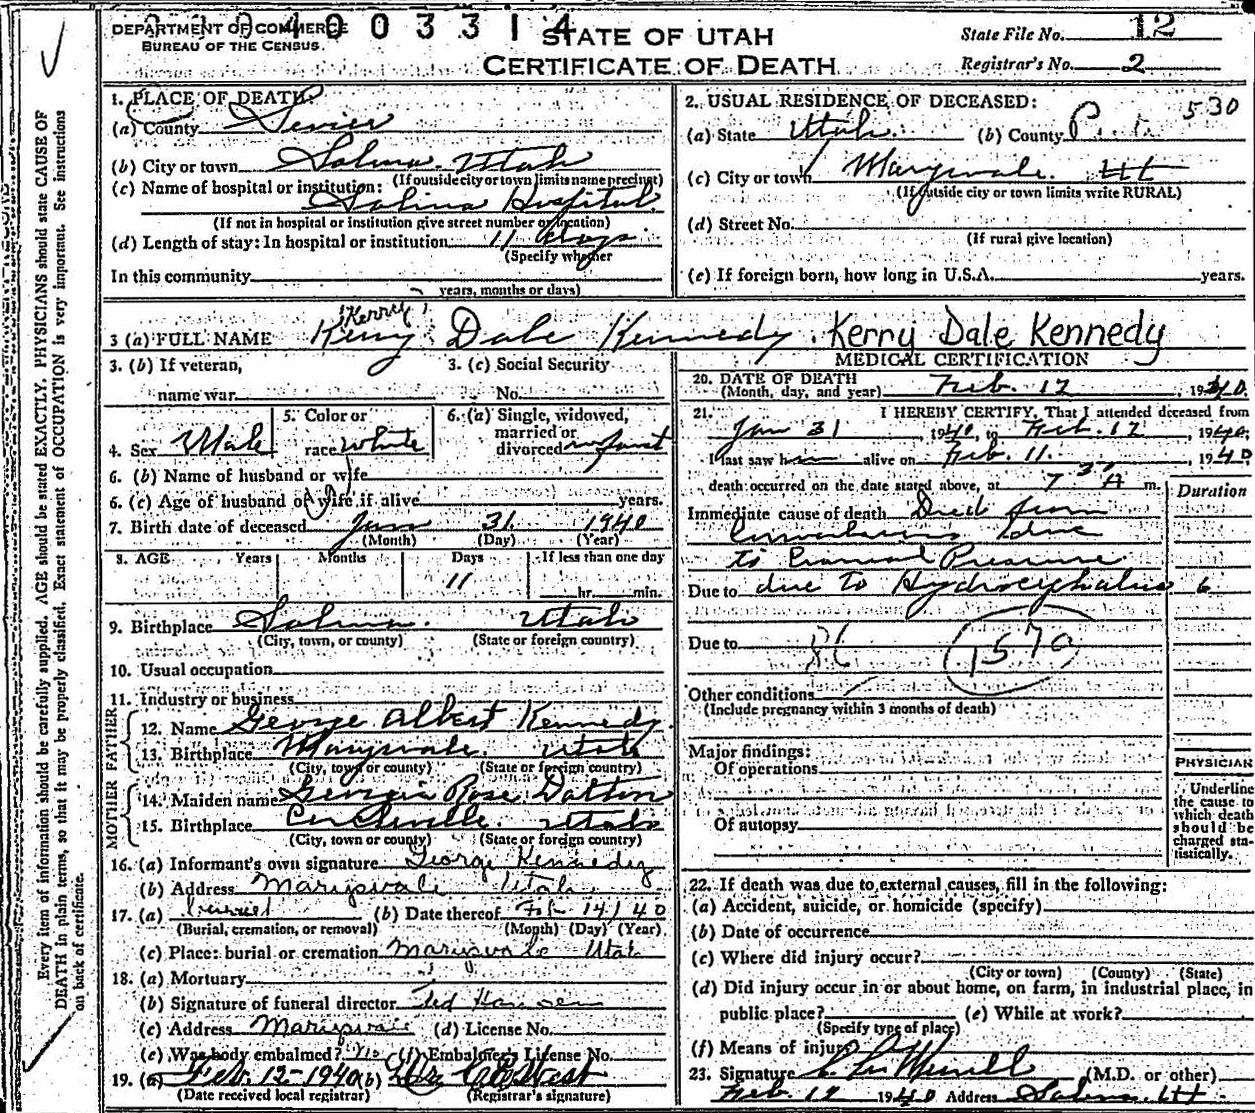 DEPARTMENT OF COMMERCE
BUREAU OF THE CENSUS
4 0 0 3 3 1 4
STATE OF UTAH
CERTIFICATE OF DEATH
State File No. 12
Registrar's No. 2
Every item of information should be carefully supplied. AGE should be stated EXACTLY. PHYSICIANS should state CAUSE OF
DEATH in plain terms, so that it may be properly classified. Exact statement of OCCUPATION is very important. See instructions
on back of certificate.
1. PLACE OF DEATH:
(a) County Sevier
(b) City or town Salina Utah
(If outside city or town limits name precinct)
(c) Name of hospital or institution:
Salina Hospital
(If not in hospital or institution give street number or location)
(d) Length of stay: In hospital or institution 11 days
(Specify whether
In this community
years, months or days)
2. USUAL RESIDENCE OF DECEASED:
530
(a) State Utah (b) County
(c) City or town Marysvale Ut
(If outside city or town limits write RURAL)
(d) Street No.
(If rural give location)
(e) If foreign born, how long in U.S.A. years.
(Kerrey)
3 (a) FULL NAME Kerry Dale Kennedy Kerry Dale Kennedy
3. (b) If veteran,
name war
3. (c) Social Security
No.
4. Sex Male
5. Color or
race white
6. (a) Single, widowed,
married or
divorced infant
6. (b) Name of husband or wife
6. (c) Age of husband or wife if alive years.
7. Birth date of deceased Jan 31 1940
(Month) (Day) (Year)
8. AGE Years Months Days If less than one day
11
hr. min.
9. Birthplace Salina Utah
(City, town, or county) (State or foreign country)
10. Usual occupation
11. Industry or business
FATHER
12. Name George Albert Kennedy
13. Birthplace Marysvale Utah
(City, town or county) (State or foreign country)
MOTHER
14. Maiden name Georgia Rose Dalton
15. Birthplace Circleville Utah
(City, town or county) (State or foreign country)
16. (a) Informant's own signature George Kennedy
(b) Address Marysvale Utah
17. (a) (b) Date thereof Feb 14/40
(Burial, cremation, or removal) (Month) (Day) (Year)
(c) Place: burial or cremation Marysvale Utah
18. (a) Mortuary
(b) Signature of funeral director Ted Hansen
(c) Address Marysvale (d) License No.
(e) Was body embalmed? No (f) Embalmer's License No.
19. (a) Feb. 12-1940 (b) West
(Date received local registrar) (Registrar's signature)
MEDICAL CERTIFICATION
20. DATE OF DEATH
(Month, day, and year) Feb. 12, 1940.
21. I HEREBY CERTIFY, That I attended deceased from
Jan 31 1940, to Feb. 12, 1940.
I last saw him alive on Feb. 11. , 1940
death occurred on the date stated above, at 7 30 A m.
Duration
Immediate cause of death Died from
Convulsions due
to Cranial Pressure
Due to due to Hydrocephalus 6
Due to
86 1570
Other conditions
(Include pregnancy within 3 months of death)
Major findings:
Of operations
Of autopsy
PHYSICIAN
Underline
the cause to
which death
should be
charged sta-
tistically.
22. If death was due to external causes, fill in the following:
(a) Accident, suicide, or homicide (specify)
(b) Date of occurrence
(c) Where did injury occur?
(City or town) (County) (State)
(d) Did injury occur in or about home, on farm, in industrial place, in
public place? (e) While at work?
(Specify type of place)
(f) Means of injury
23. Signature (M.D. or other)
Feb. 12 1940 Address Salina, Ut